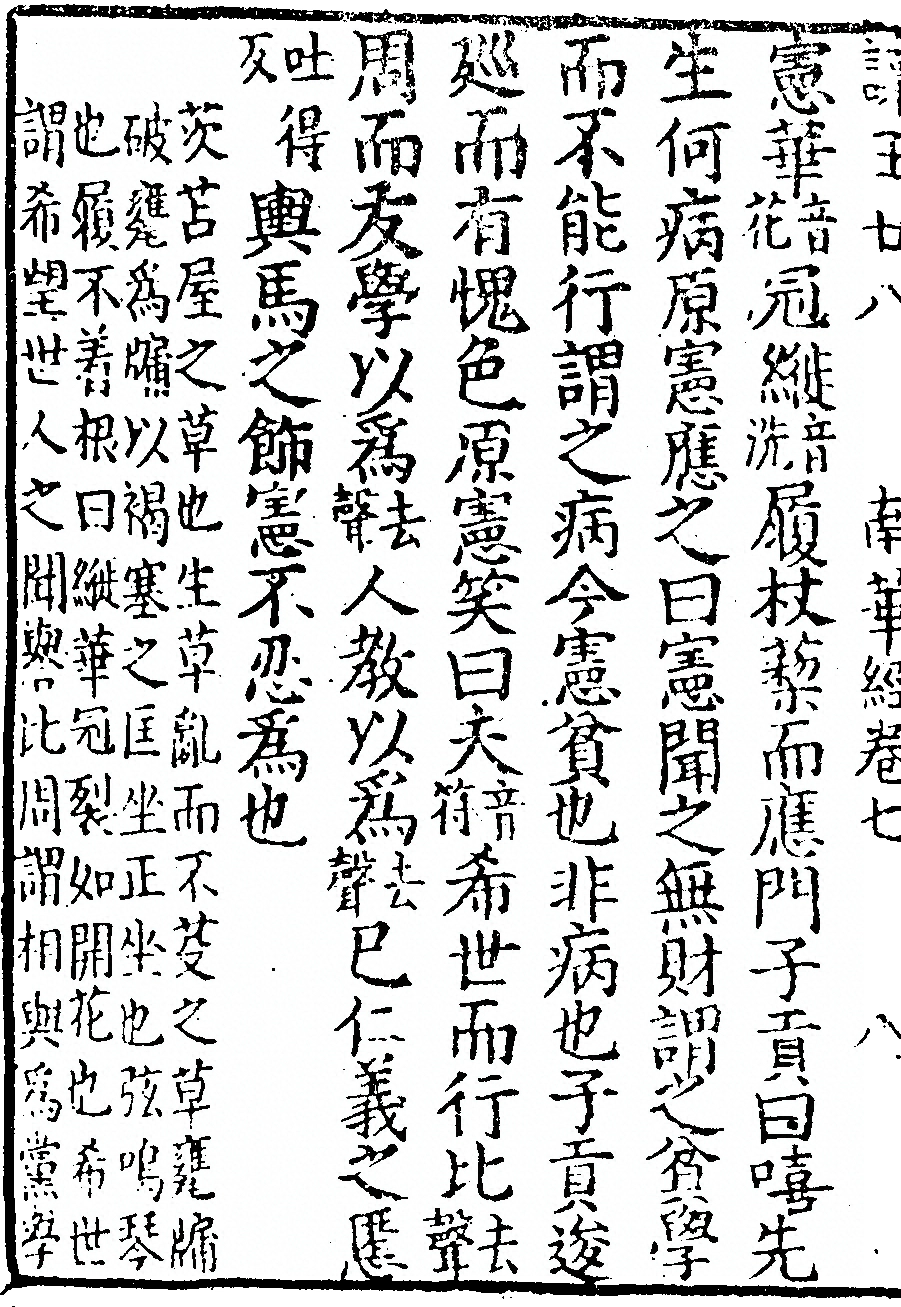 讓王廿八 南華經卷七 八
憲華音花冠縰音洗履杖藜而應門子貢曰嘻先
生何病原憲應之曰憲聞之無財謂之貧學
而不能行謂之病今憲貧也非病也子貢逡
廵而有愧色原憲笑曰夫音符希世而行比去聲
周而友學以爲去聲人教以爲去聲巳仁義之慝
吐得反輿馬之飾憲不忍爲也
茨苫屋之草也生草亂而不芟之草甕牖
破甕爲牖以褐塞之匡坐正坐也弦鳴琴
也履不着根曰縰華冠裂如開花也希世
謂希望世人之聞譽比周謂相與爲黨學